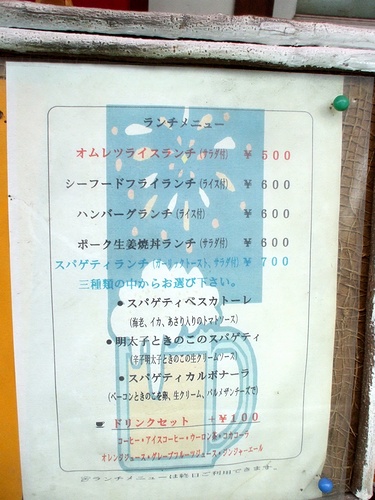 ランチメニュー
オムレツライスランチ(サラダ付) ¥500
シーフードフライランチ(ライス付) ¥600
ハンバーグランチ(ライス付) ¥600
ポーク生姜焼丼ランチ(サラダ付) ¥600
スパゲティランチ(ガーリックトースト、サラダ付) ¥700
三種類の中からお選び下さい。
●スパゲティペスカトーレ
(海老、イカ、あさり入りのトマトソース)
●明太子ときのこのスパゲティ
(辛子明太子ときのこの生クリームソース)
●スパゲティカルボナーラ
(ベーコンときのこを卵、生クリーム、パルメザンチーズで)
ドリンクセット +¥100
コーヒー・アイスコーヒー・ウーロン茶・コカコーラ
オレンジジュース・グレープフルーツジュース・ジンジャーエール
ランチメニューは終日ご利用できます。